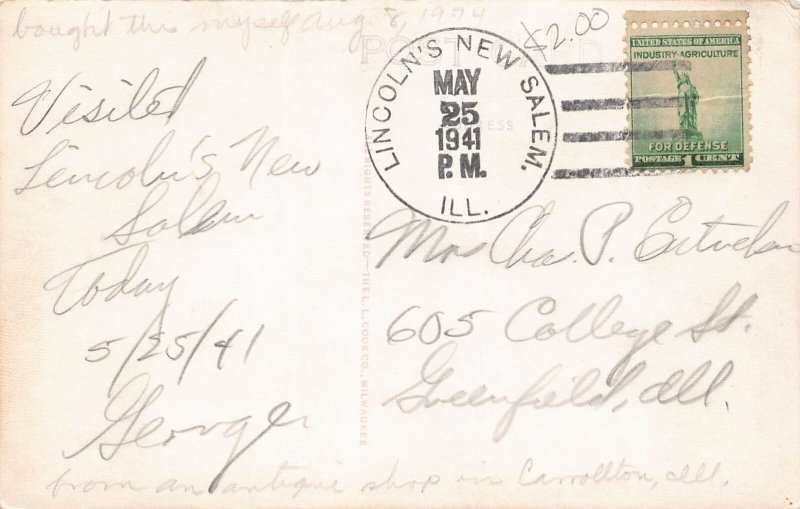 bought this myself Aug 8, 1974
POST CARD
$2.00
UNITED STATES OF AMERICA
INDUSTRY-AGRICULTURE
FOR DEFENSE
POSTAGE 1 CENT
LINCOLN'S NEW SALEM.
MAY
25
1941
P. M.
ILL.
Visited
Lincoln's New
Salem
Today
5/25/41
George
Mrs Cha. P.
605 College St.
Greenfield, Ill.
RIGHTS RESERVED—THE L. L. COOK CO., MILWAUKEE
from an antique shop in Carrollton, Ill.